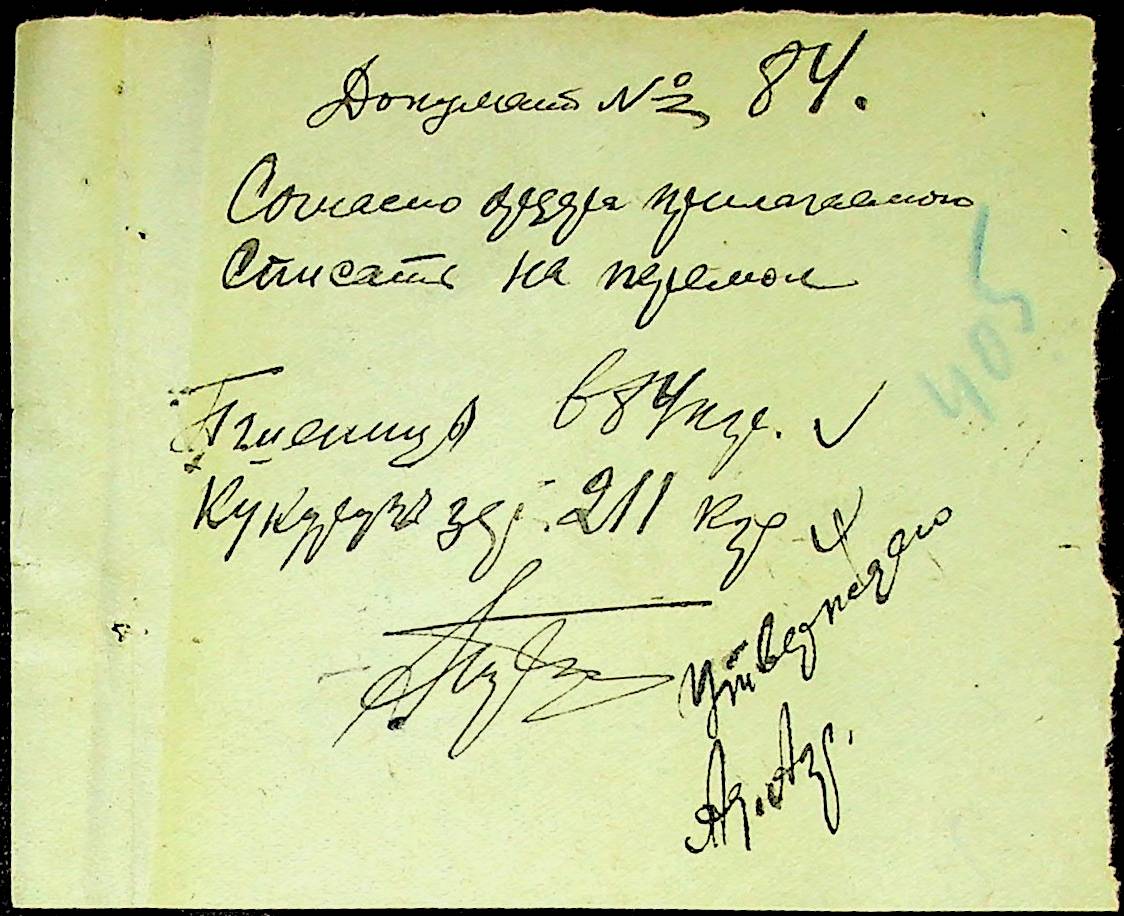 Документ № 84.
Согласно ордера прилагаемого
Списать на перемол
Пшеницы 684 кгр.
Кукурузы 211 кгр
Утверждаю
405